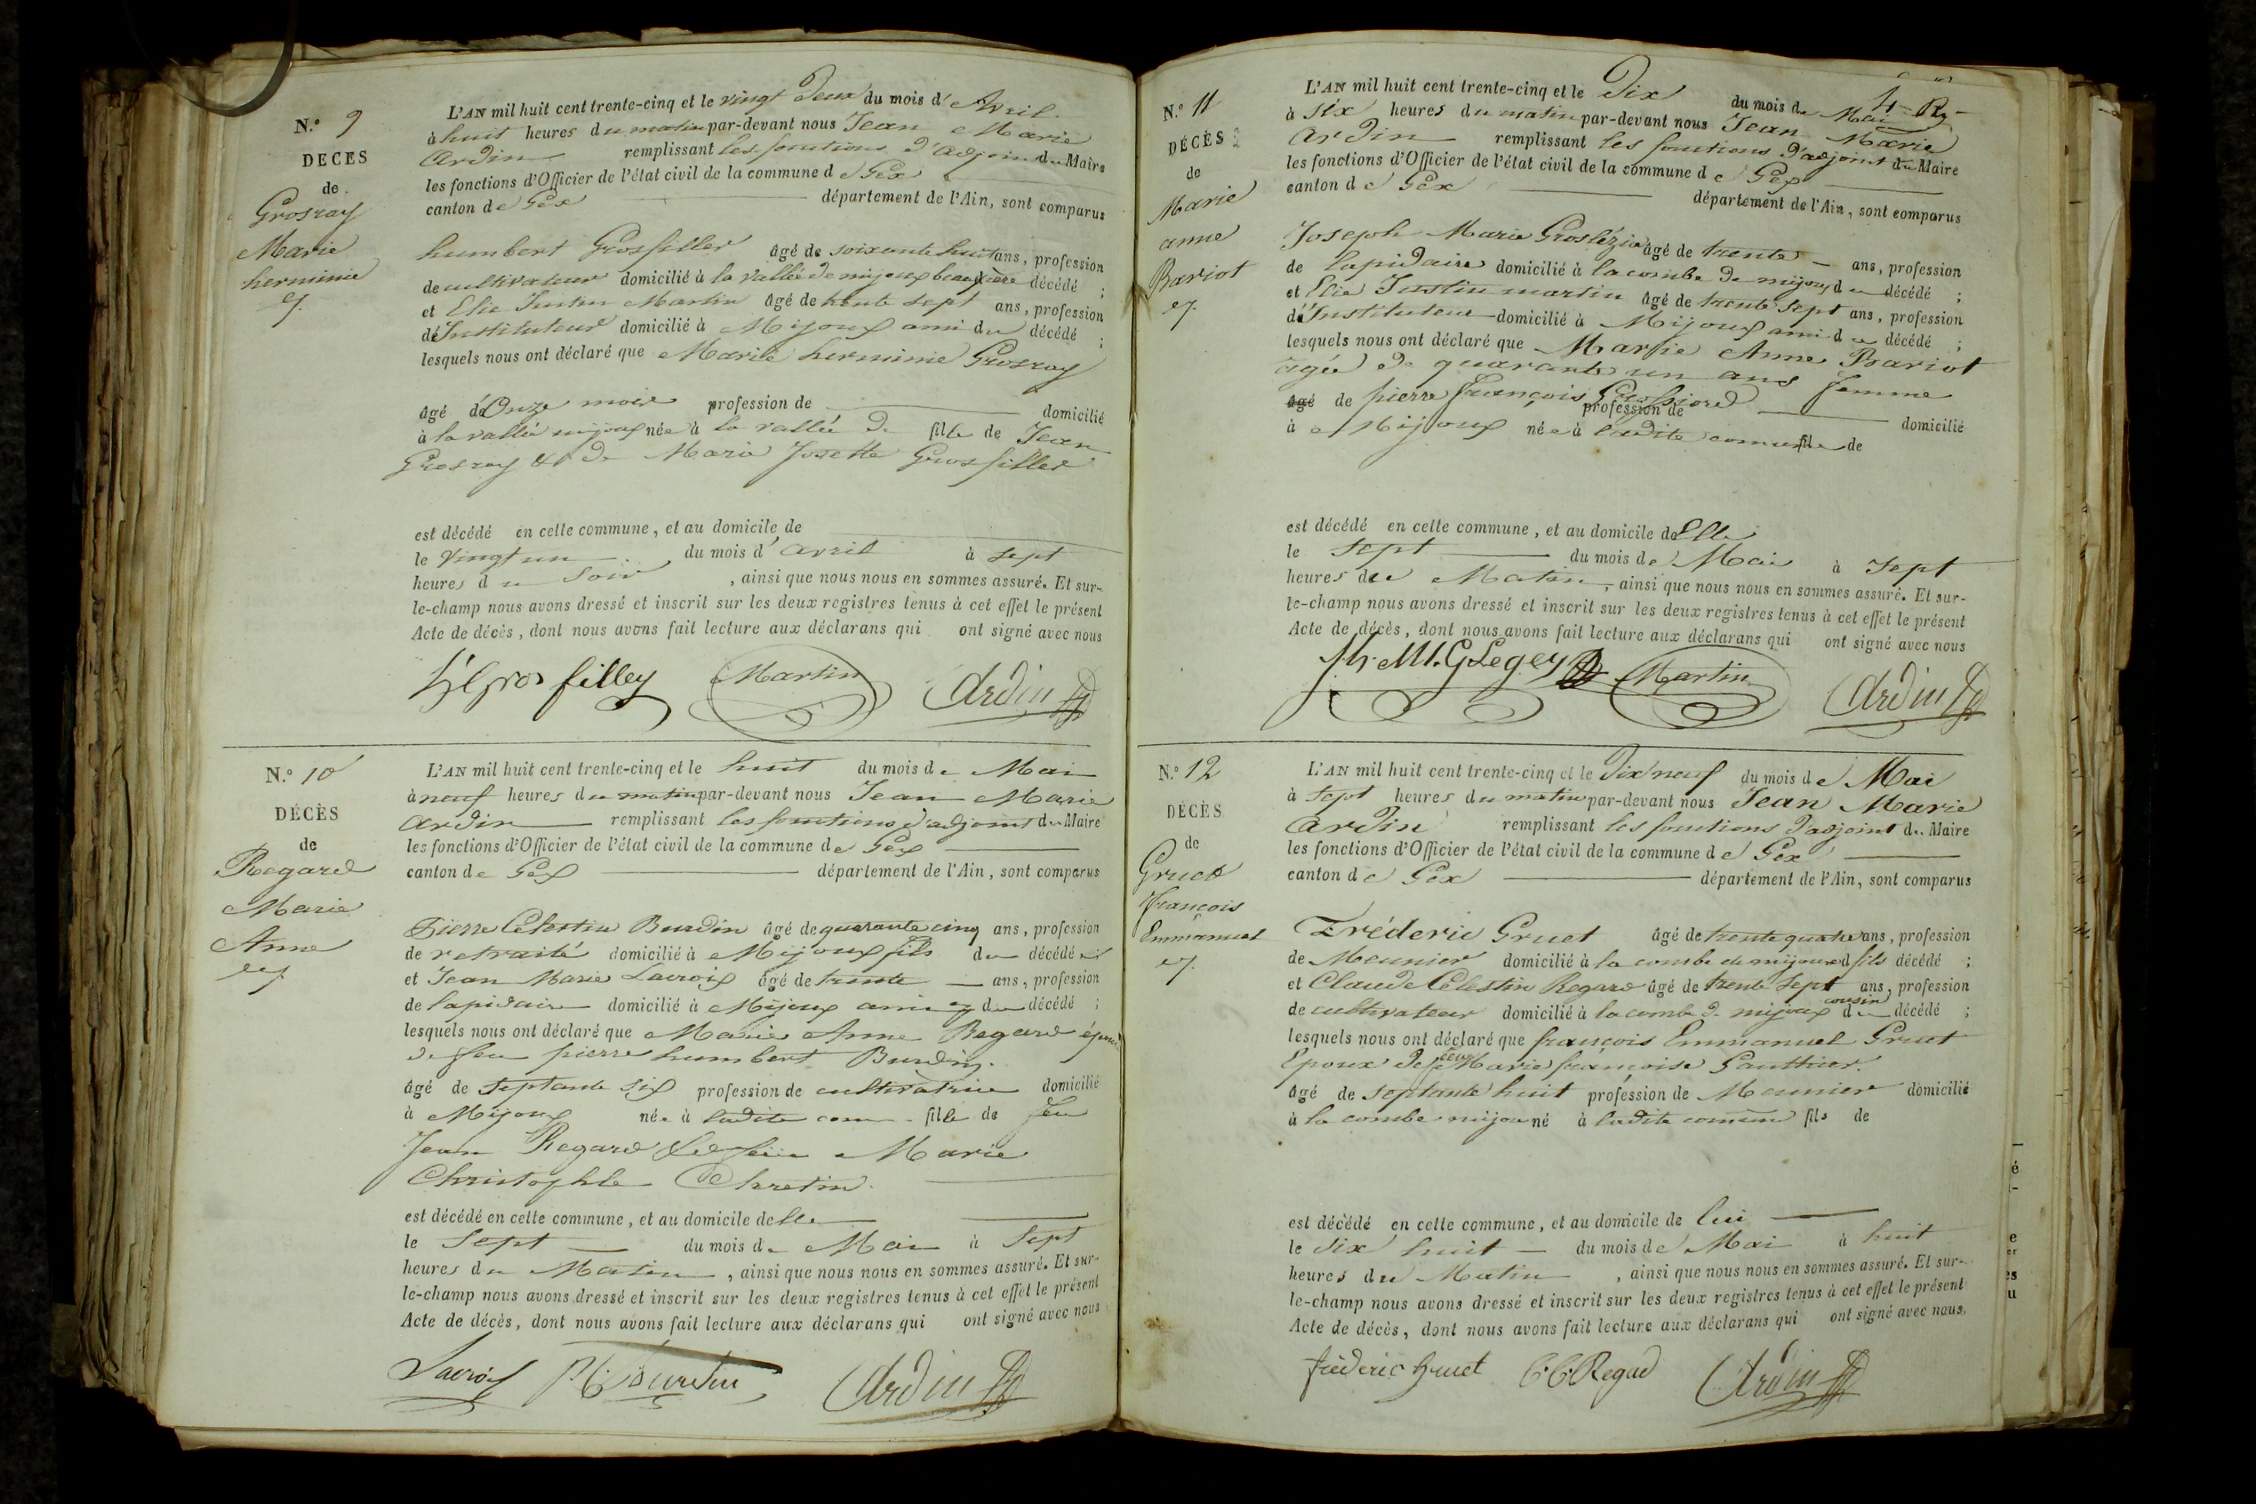 N.° 9
DECES
de
Grosray
Marie
herminie
L'AN mil huit cent trente-cinq et le vingt deux du mois d'Avril
à huit heures du matin par-devant nous Jean Marie
Ardin remplissant les fonctions d'adjoint du Maire
les fonctions d'Officier de l'état civil de la commune de Gex
canton de Gex département de l'Ain, sont comparus
humbert Grosfiller âgé de soixante huit ans, profession
de cultivateur domicilié à la vallée de mijoux décédé ;
et Elie Justin Martin âgé de trente sept ans, profession
d'Instituteur domicilié à Mijoux ami du décédé ;
lesquels nous ont déclaré que Marie herminie Grosray
âgé d'Onze mois profession de domicilié
à la vallée mijoux née à la vallée de fille de Jean
Grosray & de Marie Josette Grosfiller
est décédé en cette commune, et au domicile de
le vingt un du mois d'avril à sept
heures du soir , ainsi que nous nous en sommes assuré. Et sur-
le-champ nous avons dressé et inscrit sur les deux registres tenus à cet effet le présent
Acte de décès, dont nous avons fait lecture aux déclarans qui ont signé avec nous
Grosfilley Martin Ardin
N.° 10
DÉCÈS
de
Regard
Marie
Anne
L'AN mil huit cent trente-cinq et le huit du mois de Mai
à neuf heures du matin par-devant nous Jean Marie
Ardin remplissant les fonctions d'adjoint du Maire
les fonctions d'Officier de l'état civil de la commune de Gex
canton de Gex département de l'Ain, sont comparus
Pierre Célestin Burdin âgé de quarante cinq ans, profession
de retraité domicilié à Mijoux fils du décédé
et Jean Marie Lacroix âgé de trente ans, profession
de lapidaire domicilié à Mijoux ami du décédé ;
lesquels nous ont déclaré que Marie Anne Regard épouse
de feu pierre humbert Burdin.
âgé de septante six profession de cultivatrice domicilié
à Mijoux née à ladite com fille de feu
Jean Regard & de feue Marie
Christophle Chretin.
est décédé en cette commune, et au domicile delle
le Sept du mois de Mai à Sept
heures du Matin , ainsi que nous nous en sommes assuré. Et sur-
le-champ nous avons dressé et inscrit sur les deux registres tenus à cet effet le présent
Acte de décès, dont nous avons fait lecture aux déclarans qui ont signé avec nous
Lacroix Burdin Ardin
N.° 11
DÉCÈS
de
Marie
anne
Bariot
L'AN mil huit cent trente-cinq et le Dix du mois de Mai
à six heures du matin par-devant nous Jean Marie
Ardin remplissant les fonctions d'adjoint du Maire
les fonctions d'Officier de l'état civil de la commune de Gex
canton de Gex département de l'Ain, sont comparus
Joseph Marie âgé de trente ans, profession
de lapidaire domicilié à la combe de mijoux du décédé ;
et Elie Justin martin âgé de trente sept ans, profession
d'Instituteur domicilié à Mijoux ami du décédé ;
lesquels nous ont déclaré que Marie Anne Bariot
agée de quarante un ans femme
âgé de pierre françois profession de domicilié
à Mijoux née à ladite commune fille de
est décédé en cette commune, et au domicile delle
le Sept du mois de Mai à Sept
heures du Matin , ainsi que nous nous en sommes assuré. Et sur-
le-champ nous avons dressé et inscrit sur les deux registres tenus à cet effet le présent
Acte de décès, dont nous avons fait lecture aux déclarans qui ont signé avec nous
Martin Ardin
N.° 12
DÉCÈS
de
Gruet
François
Emmanuel
L'AN mil huit cent trente-cinq et le Dix neuf du mois de Mai
à sept heures du matin par-devant nous Jean Marie
Ardin remplissant les fonctions d'adjoint du Maire
les fonctions d'Officier de l'état civil de la commune de Gex
canton de Gex département de l'Ain, sont comparus
Fréderic Gruet âgé de trente quatre ans, profession
de Meunier domicilié à la combe de mijoux fils décédé ;
et Claude Célestin Regard âgé de trente sept ans, profession
de cultivateur domicilié à la combe de mijoux cousin du décédé ;
lesquels nous ont déclaré que françois Emmanuel Gruet
Epoux de feue Marie françoise Gauthier.
âgé de septante huit profession de Meunier domicilié
à la combe mijou né à ladite commune fils de
est décédé en cette commune, et au domicile de lui
le dix huit du mois de Mai à huit
heures du Matin , ainsi que nous nous en sommes assuré. Et sur-
le-champ nous avons dressé et inscrit sur les deux registres tenus à cet effet le présent
Acte de décès, dont nous avons fait lecture aux déclarans qui ont signé avec nous.
fréderic gruet C. C. Regad Ardin